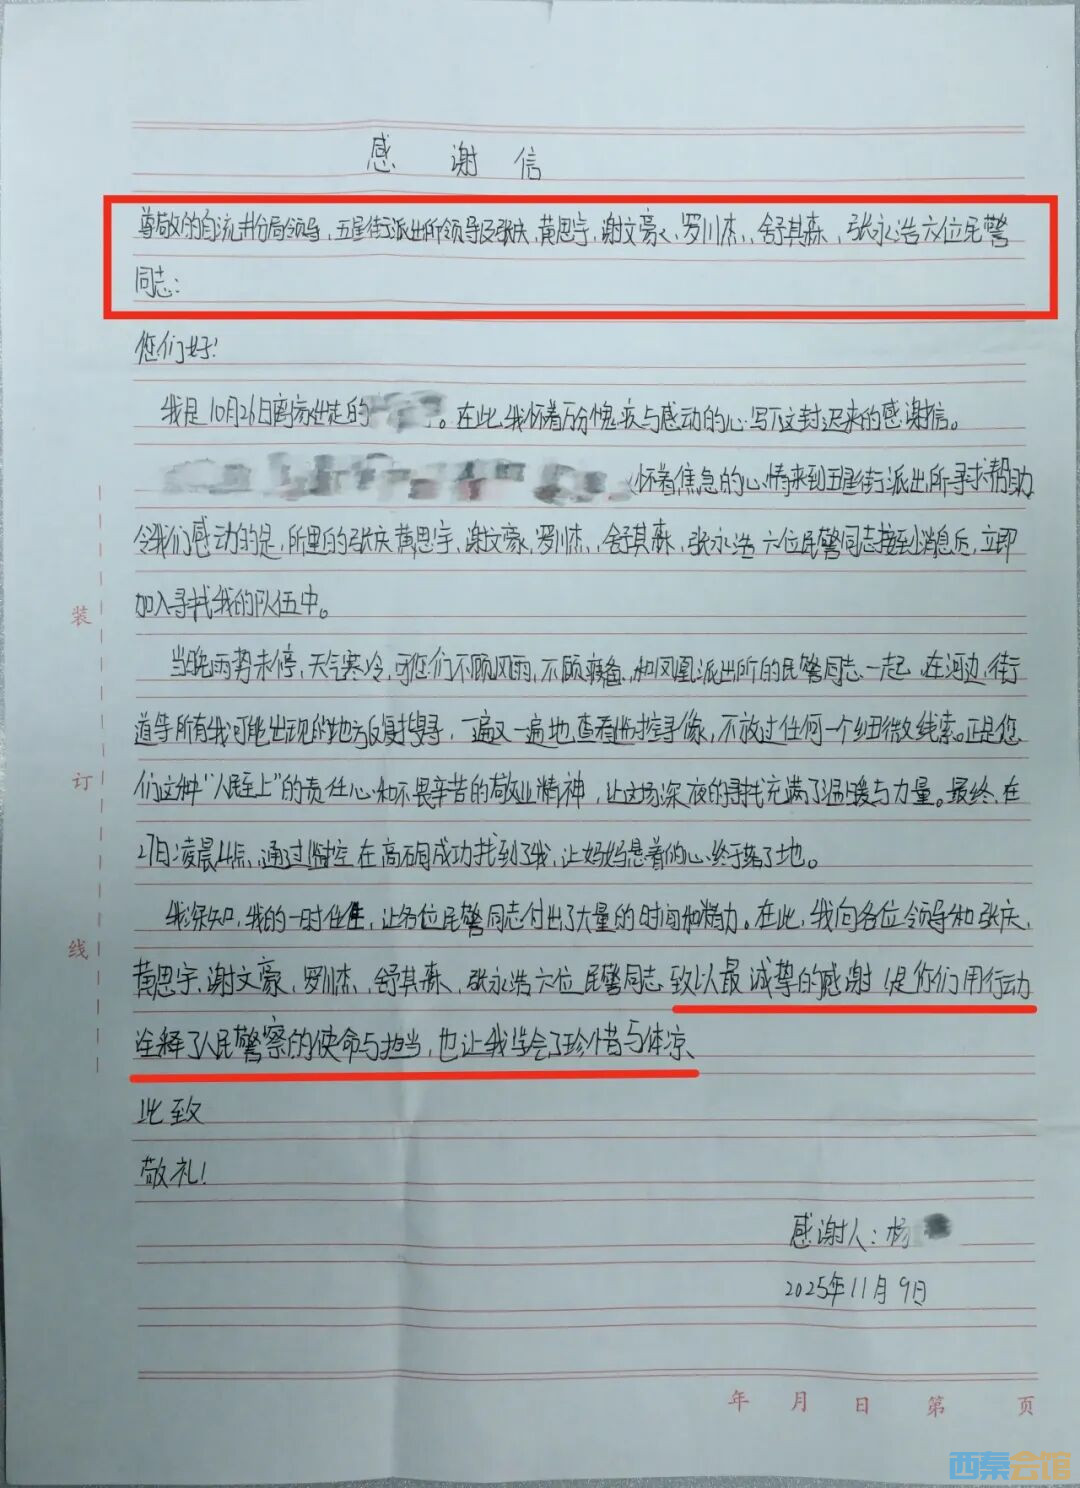 感谢信
尊敬的自流井分局领导、五星街派出所领导及张庆、黄思宇、谢文豪、罗川杰、舒其森、张永浩六位民警
同志：
您们好！
我是10月26日离家出走的 。在此，我怀着万分愧疚与感动的心写下这封迟来的感谢信。
怀着焦急的心情来到五星街派出所寻求帮助
令我们感动的是，所里的张庆、黄思宇、谢文豪、罗川杰、舒其森、张永浩六位民警同志接到消息后，立即
加入寻找我的队伍中。
当晚雨势未停，天气寒冷，可您们不顾风雨，不顾疲惫，和凤凰派出所的民警同志一起，在河边、街
道等所有我可能出现的地方反复搜寻，一遍又一遍地查看监控录像，不放过任何一个细微线索。正是您
们这种“人民至上”的责任心和不畏辛苦的敬业精神，让这场深夜的寻找充满了温暖与力量。最终，在
27日凌晨4点，通过监控在高硐成功找到了我，让妈妈悬着的心终于落了地。
我深知，我的一时任性，让各位民警同志付出了大量的时间和精力。在此，我向各位领导和张庆、
黄思宇、谢文豪、罗川杰、舒其森、张永浩六位民警同志致以最诚挚的感谢！是你们用行动
诠释了人民警察的使命与担当，也让我学会了珍惜与体凉、
此致
敬礼！
感谢人：杨
2025年11月9日
装
订
线
年 月 日 第 页
西秦会馆